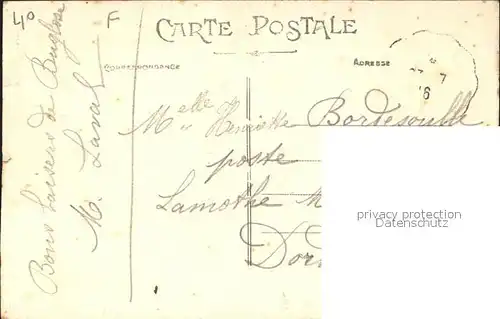 40
F
CARTE POSTALE
CORRESPONDANCE
ADRESSE
Bons baisers de Buglose
M. Laval
Melle Henriette Bordesoulle
poste
Lamothe M
Dor
privacy protection
Datenschutz